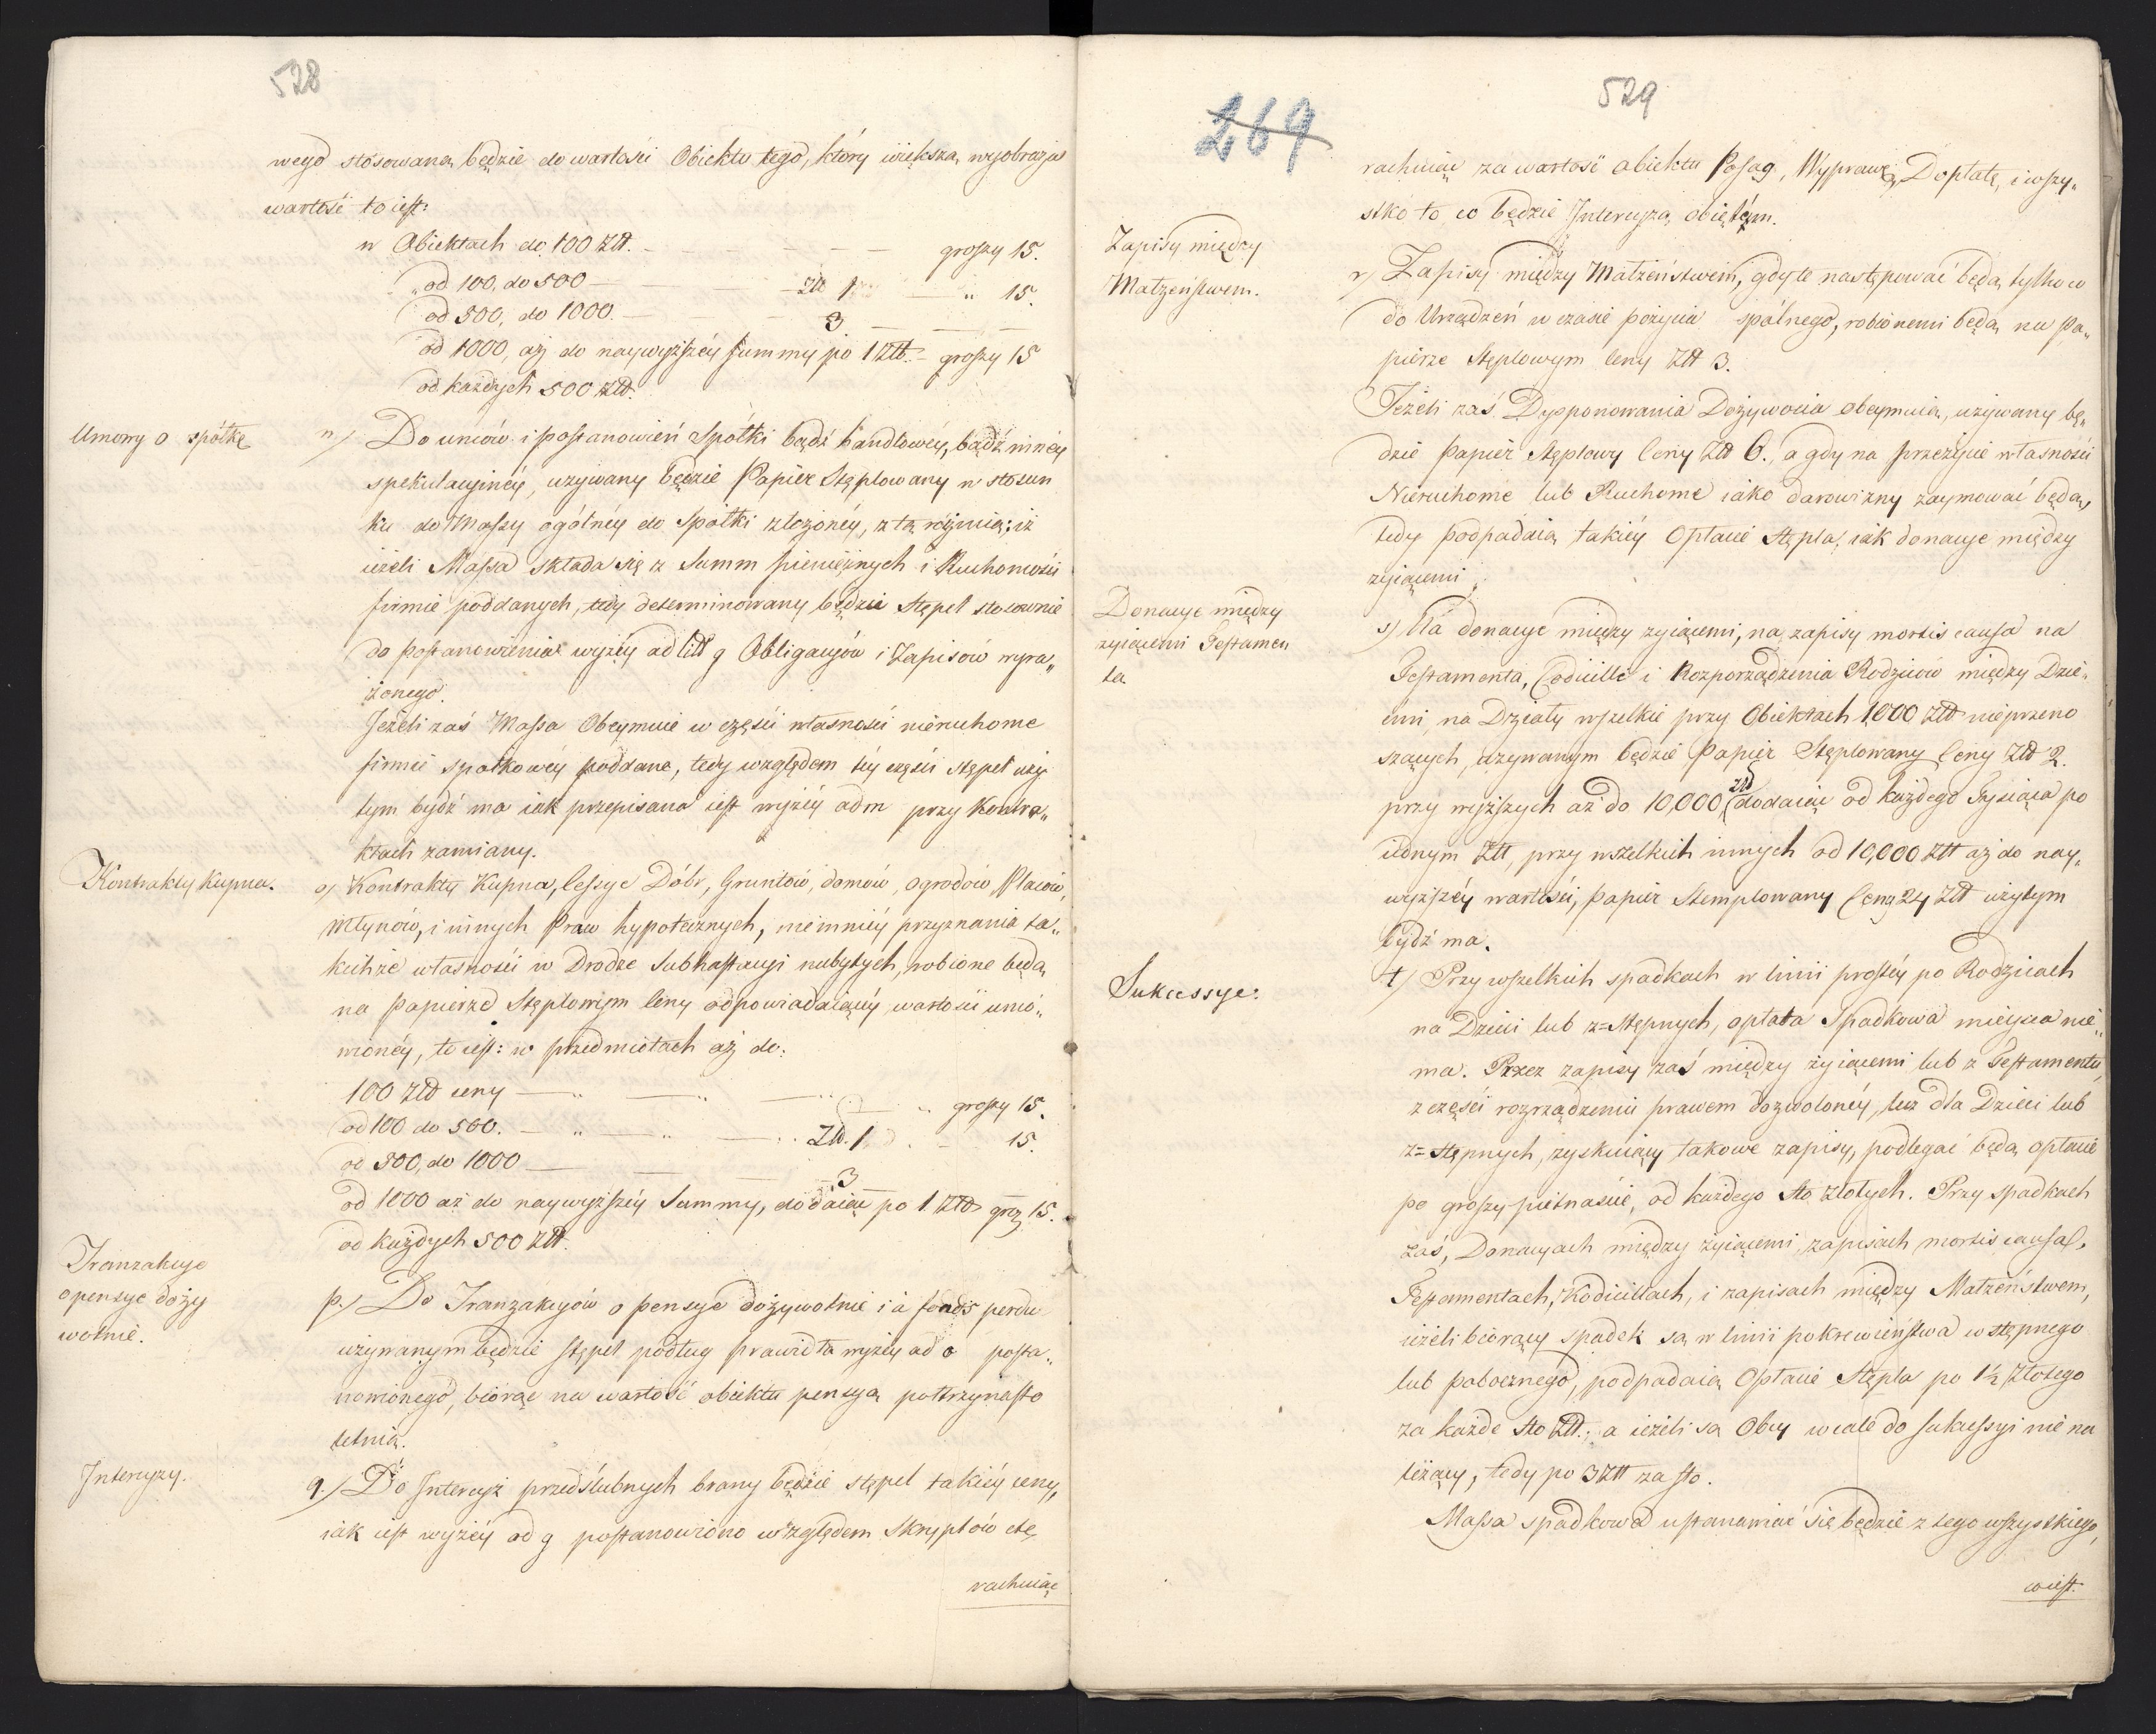 528
wego stosowaną będzie do wartości Obiektu tego, który większą wyobraża
wartość to iest:
w Obiektach do 100 Złł. — — — — groszy 15.
„ od 100, do 500 — — — Złł 1 — „ 15.
od 500, do 1000. — — — 3. — — —
od 1000, aż do naywyższéy summy po 1 Złł. — groszy 15
od każdych 500 Złł.
Umowy o spółkę
n.) Do umów i postanowień Spółki bądź handlowéy, bądź innéy
spekulacyinéy, używany będzie Papiér Stęplowany w stosun
ku do Massy ogólnéy do Spółki złożonéy, z tą różnicą: iż
ieżeli Massa składa się z Summ pieniężnych i Ruchomości
firmie poddanych, tedy determinowany będzie Stępel stosownie
do postanowienia wyżéy ad litt g Obligacyów i Zapisów wyra„
żonego.
Jeżeli zaś Massa Obeymuie w części własności nieruchome
firmie społkowéy poddane, tedy względem téy części stępel uży
tym bydź ma iak przepisana iest wyżéy ad m przy Kontra„
ktach zamiany.
Kontrakty Kupna.
o) Kontrakty Kupna, Cessye Dóbr, Gruntów, domów, ogrodów, Placów,
Młynów, i innych Praw hypotecznych, niemniéy przyznania ta„
kichże własności w Drodze Subhastacyi nabytych, robione będą
na Papierze Stęplowym Ceny odpowiadaiącéy wartości umó„
wionéy, to iest: w przedmiotach aż do:
100 Złł ceny — „ — „ — „ groszy 15.
od 100 do 500. — „ — „ — Złł. 1. — 15.
od 500, do 1000 — — — 3 —
od 1000 aż do naywyższéy Summy, dodaiąc po 1 Złł grosz 15.
od każdych 500 Złł.
Tranzakcye
o pensye doży
wotnie.
p.) Do Tranzakcyów o pensye dożywotnie i à fonds perdu
używanym będzie stępel podług prawidła wyżéy ad o posta„
nowionego, biorąc na wartość obiektu pensyą półtrzynasto
letnią.
Intercyzy.
q.) Do Intercyz przedślubnych brany będzie stępel takiéy ceny,
iak iest wyżéy ad g postanowiono względem Skryptów etc
rachuiąc
269
529
rachuiąc za wartość obiektu Posag, Wyprawę, Dopłatę, i wszy„
stko to co będzie Intercyzą obiętém.
Zapisy między
Małżeństwem.
r) Zapisy między Małżeństwem, gdy te następować będą tylko co
do Urządzeń w czasie pożycia spólnego, robionemi będą na Pa„
piérze Stęplowym Ceny Złł 3.
Jeżeli zaś Dysponowania Dożywocia obeymuią, używany bę„
dzie Papiér Stęplowy Ceny Złł 6., a gdy na przeżycie własności
Nieruchome lub Ruchome iako darowizny zaymować będą,
tedy podpadaią takiéy Opłacie Stępla, iak donacye między
żyiącemi.
Donacye między
żyiącemi Testamen
ta
s) Na donacye między żyiącemi, na zapisy mortis causa na
Testamenta, Codicille i Rozporządzenia Rodziców między Dzie„
ćmi, na Działy wszelkie przy Obiektach 1000 Złł nieprzeno
szących, używanym będzie Papiér Stęplowany Ceny Złł 2.
przy wyższych aż do 10,000 Złł dodaiąc od każdego Tysiąca po
iednym Złł, przy wszelkich innych od 10,000 Złł aż do nay„
wyższéy wartości, Papiér Stemplowany Ceny 24 Złł użytym
bydź ma.
Sukcessye.
t) Przy wszelkich spadkach w linii prostéy po Rodzicach
na Dzieci lub z=stępnych, opłata Spadkowa mieysca nie„
ma. Przez zapisy zaś między żyiącemi lub z Testamentu,
z części rozrządzeniu prawem dozwolonéy, lecz dla Dzieci lub
z=stępnych, zyskuiący takowe zapisy, podlegać będą opłacie
po groszy piętnaście, od każdego sto Złotych. Przy spadkach
zaś, Donacyach między żyiącemi, zapisach mortis causa,
Testamentach, Kodicillach, i zapisach między Małżeństwem,
ieżeli biorący spadek są w linii pokrewieństwa wstępnego
lub pobocznego, podpadaią Opłacie Stępla po 1½ Złotego
za każde sto Złł.; a ieżeli są Obcy wcale do sukcessyi nie na
leżący, tedy po 3 Złł za sto.
Massa spadkowa ustanawiać się będzie z tego wszystkiego,
co iest.